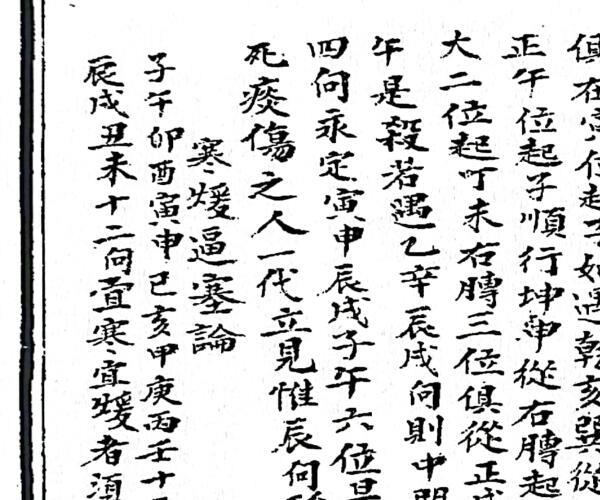 俱在寅位起子如遇乾亥巽從
正午位起子順行坤申從右膊起
大二位起丁未右膊三位俱從正戌
午是殺若遇乙辛辰戌向則中間
四向永定寅申辰戌子午六位是
死瘓傷之人一代立見惟辰向
寒煖逼塞論
子午卯酉寅申巳亥甲庚丙壬十二
辰戌丑未十二向宜寒宜煖者須